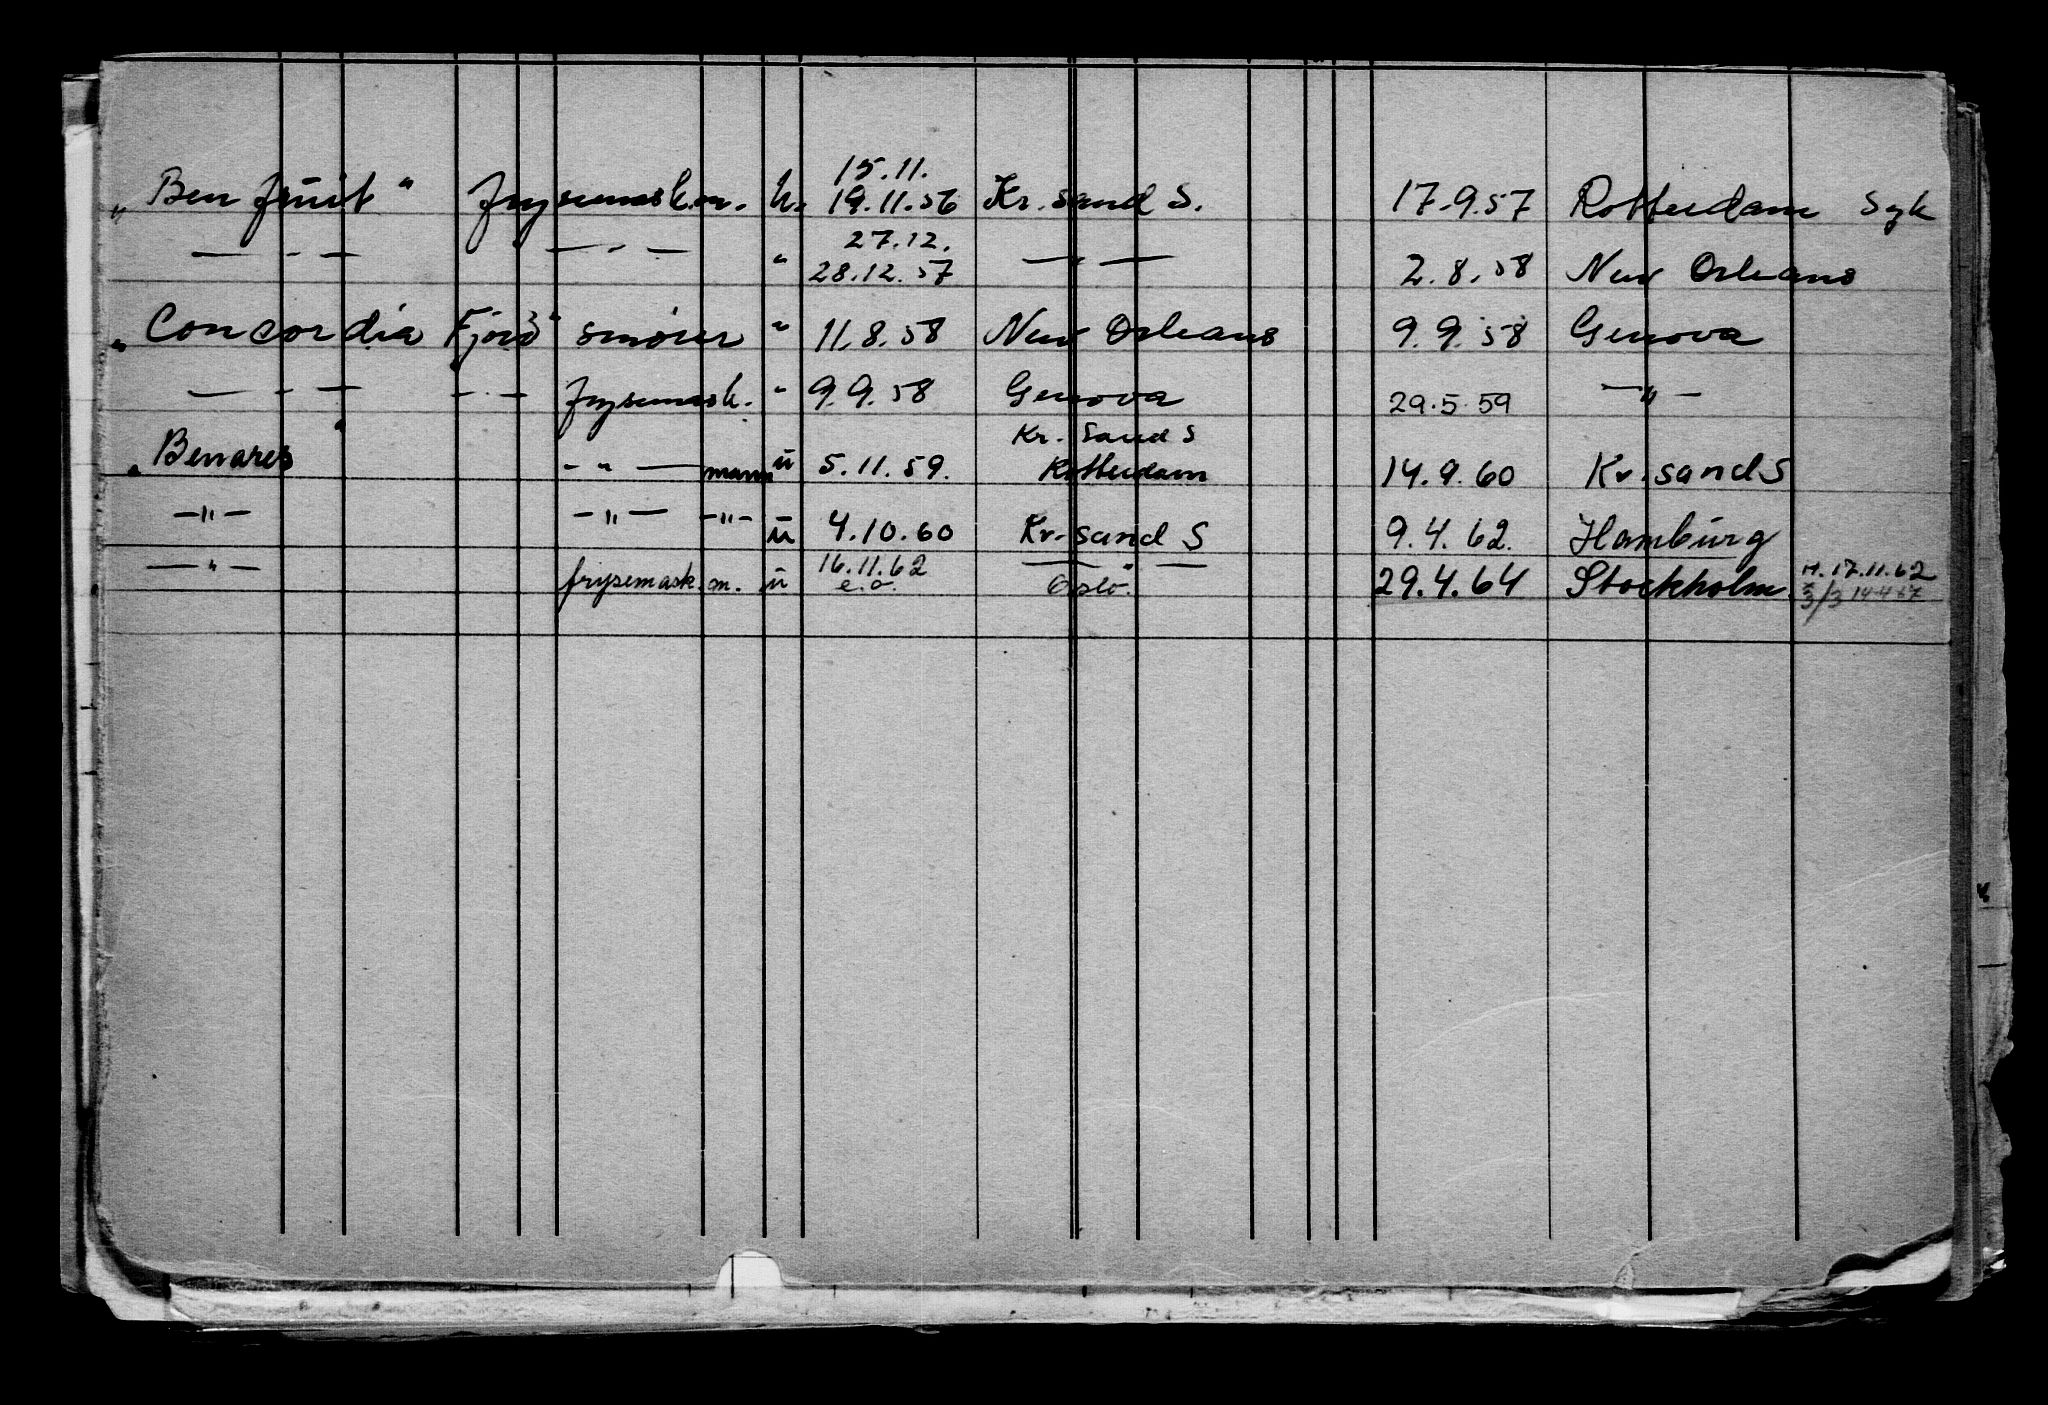 15.11.
„Ben Fruit" frysemask.m. u. 19.11.56 Kr.sand S. 17.9.57 Rotterdam Syk
27.12.
— " — — " — " 28.12.57 — " — 2.8.58 New Orleans
„Concordia Fjord" smører " 11.8.58 New Orleans 9.9.58 Genova
— " — - " - frysemask. " 9.9.58 Genova 29.5.59 — " —
Kr. Sand S
„Benares" - " — mann u 5.11.59. Rotterdam 14.9.60 Kr.sand S
— " — — " — — " — u 4.10.60 Kr.sand S 9.4.62. Hamburg
— " — frysemask.m. u 16.11.62 — " — 29.4.64 Stockholm M. 17.11.62
e.o. Oslo. 3/3 14.4.67